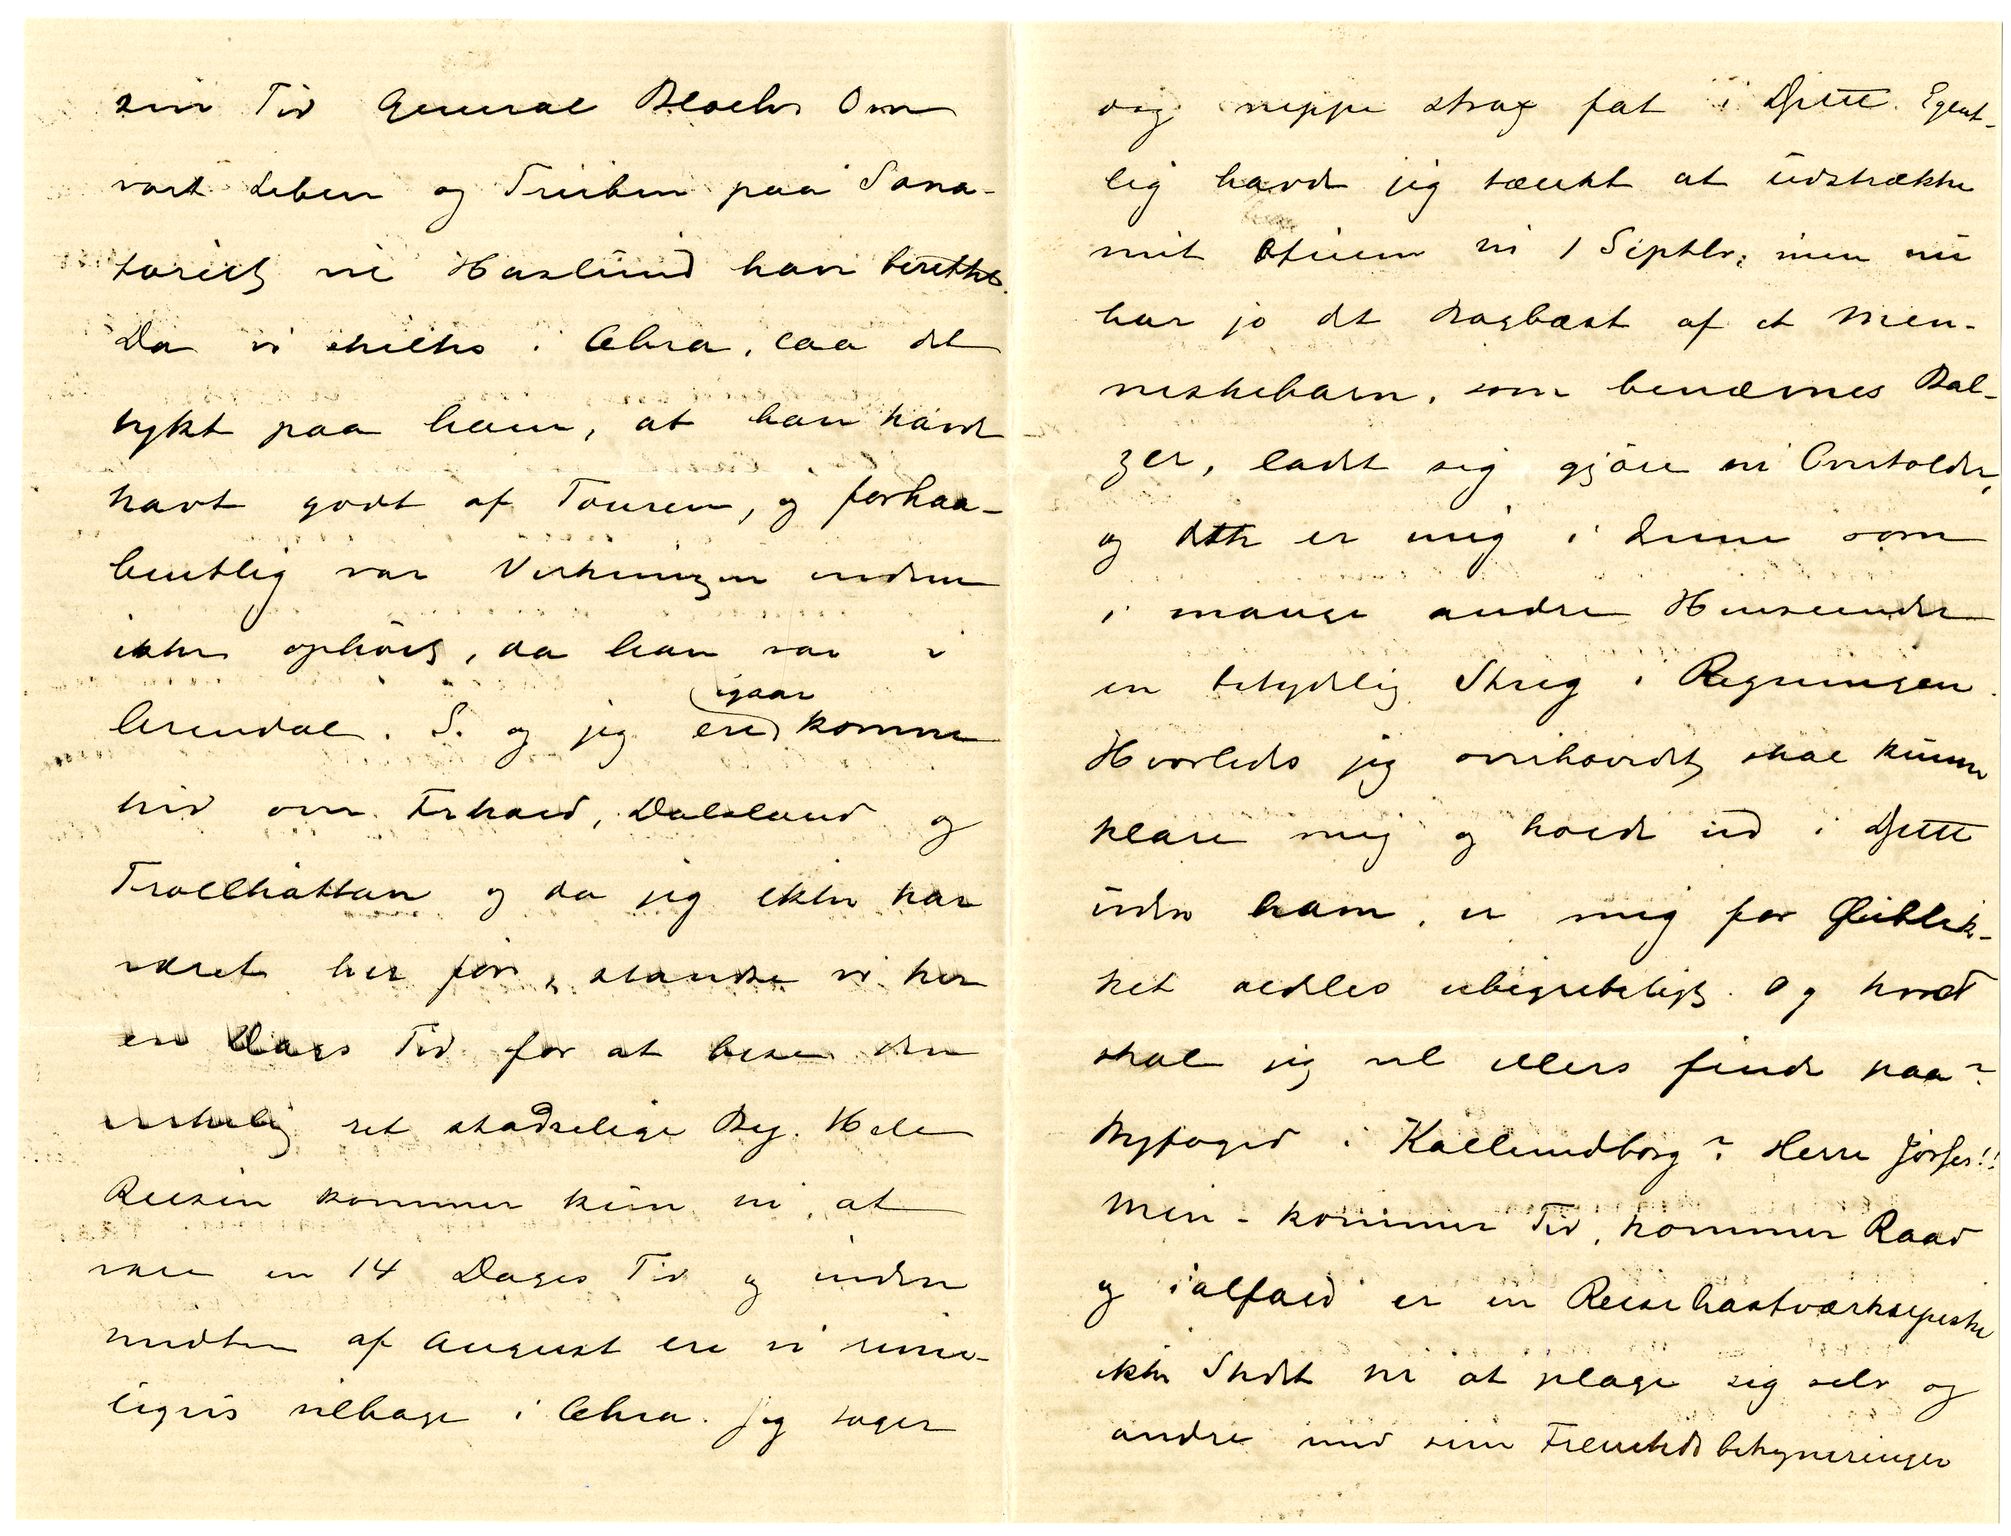 sin Tid General Blochs Om
vort Leben og Treiben paa Sana-
toriet vil Haslund have berettet.
Da vi skiltes i Chra, saa det
rykt paa ham, at han havde
havt godt af Touren, og forhaa-
bentlig var Virkningen endnu
ikke ophört, da han var i
Arendal. S. og jeg ere igaar komne
hid over Frhald, Dalsland og
Trollhättan og da jeg ikke har
været her för, standse vi her
en Dags Tid for at bese den
virkelig ret stadselige By. Hele
Reisen kommer kun til at
vare en 14 Dages Tid og inden
midten af August ere vi rime-
ligvis tilbage i Chra. Jeg tager
dog neppe strax fat i Dptt. Egent-
lig havde jeg tænkt at udstrække
mit Otium til 1 Septbr; men nu
har jo det Bagbæst af et Men-
neskebarn, som benævnes Bal-
zer, ladet sig gjöre til Overtolder,
og dette er mig i denne som
i mange andre Henseender
en betydelig Streg i Regningen.
Hvorledes jeg overhovedet skal kunne
klare mig og holde ud i Dptt
uden ham, er mig for Öieblik-
ket aldeles ubegribeligt. Og hvad
skal jeg vel ellers finde paa?
Byfoged i Kallundborg? Herre Jösses!!
Men - kommer Tid, kommer Raad
og ialfald er en
ikke Stedet til at plage sig selv og
andre med sine Fremtidsbekymringer